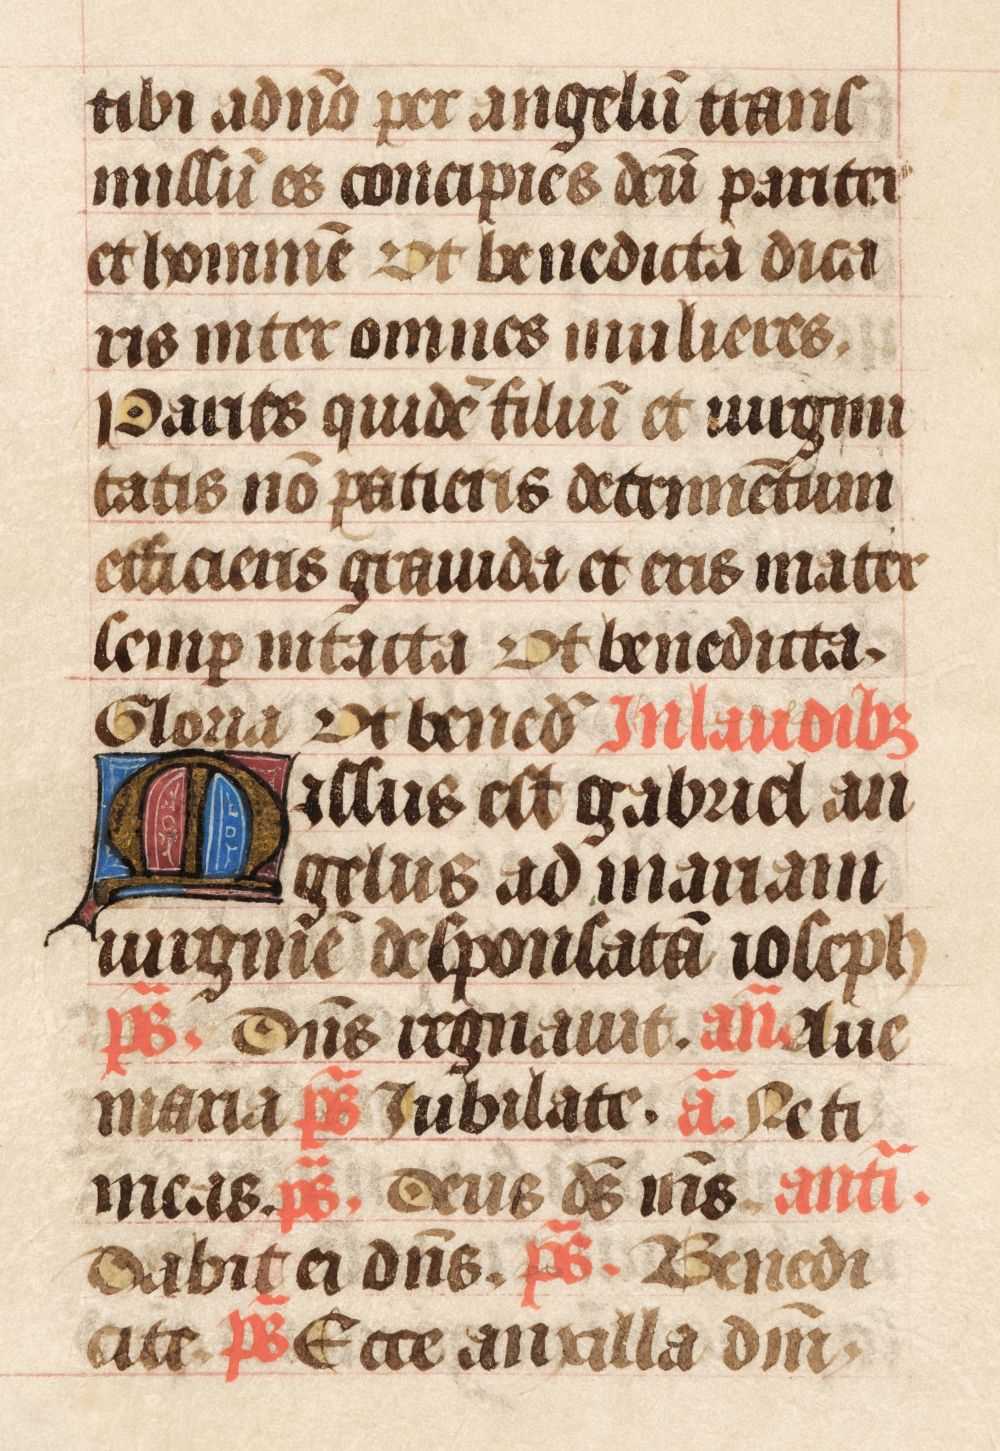 tibi a dño per angelũ trans
missũ es concipies deũ pariter
et hominẽ Ut benedicta dica
ris inter omnes mulieres.
Paries quidẽ filiũ et uirgini
tatis nõ patieris detrimẽtum
efficieris grauida et eris mater
semp intacta Ut benedicta.
Gloria Ut bened̃ In laudibꝫ
Missus est gabriel an
gelus ad mariam
uirginẽ desponsatã ioseph
p̃s. Dñs regnauit. añ. Aue
maria p̃s Jubilate. ã. Ne ti
meas. p̃s. Deus ds̃ m̃s. anti.̃
Dabit ei dñs. p̃s. Benedi
cite. p̃s Ecce ancilla dñi.